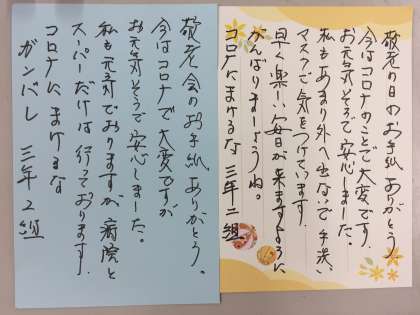 敬老の日のお手紙ありがとう。
今はコロナのことで大変です。
お元気そうで安心しました。
私もあまり外へ出ないで手洗い
マスクで気をつけています。
早く楽しい毎日が来ますように
がんばりましょうね。
コロナにまけるな 三年二組
敬老会のお手紙ありがとう。
今はコロナで大変ですが
お元気そうで安心しました。
私も元気でおりますが病院と
スーパーだけは行っております。
コロナにまけるな
ガンバレ 三年2組